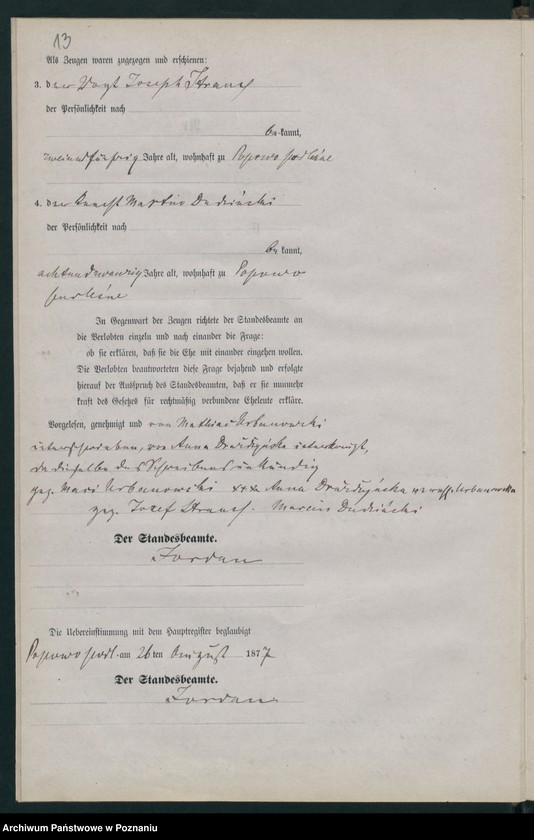 13
Als Zeugen waren zugezogen und erschienen:
3. der Vogt Joseph Strauch
der Persönlichkeit nach
be kannt,
zweiundfünfzig Jahre alt, wohnhaft zu Popowo podleśne
4. der Knecht Martin Dudziński
der Persönlichkeit nach
be kannt,
achtundzwanzig Jahre alt, wohnhaft zu Popowo
podleśne
In Gegenwart der Zeugen richtete der Standesbeamte an
die Verlobten einzeln und nach einander die Frage:
ob sie erklären, daß sie die Ehe mit einander eingehen wollen.
Die Verlobten beantworteten diese Frage bejahend und erfolgte
hierauf der Ausspruch des Standesbeamten, daß er sie nunmehr
kraft des Gesetzes für rechtmäßig verbundene Eheleute erkläre.
Vorgelesen, genehmigt und von Mathias Urbanowski
unterschrieben, von Anna unterkreuzt,
da dieselbe des Schreibens unkundig
gez. Urbanowski +++ Anna verehl. Urbanowska
gez. Jozef Strauch. Marcin Dudziński
Der Standesbeamte.
Jordan
Die Uebereinstimmung mit dem Hauptregister beglaubigt
Popowo podl. am 26 ten August 1877
Der Standesbeamte.
Jordan
Archiwum Państwowe w Poznaniu